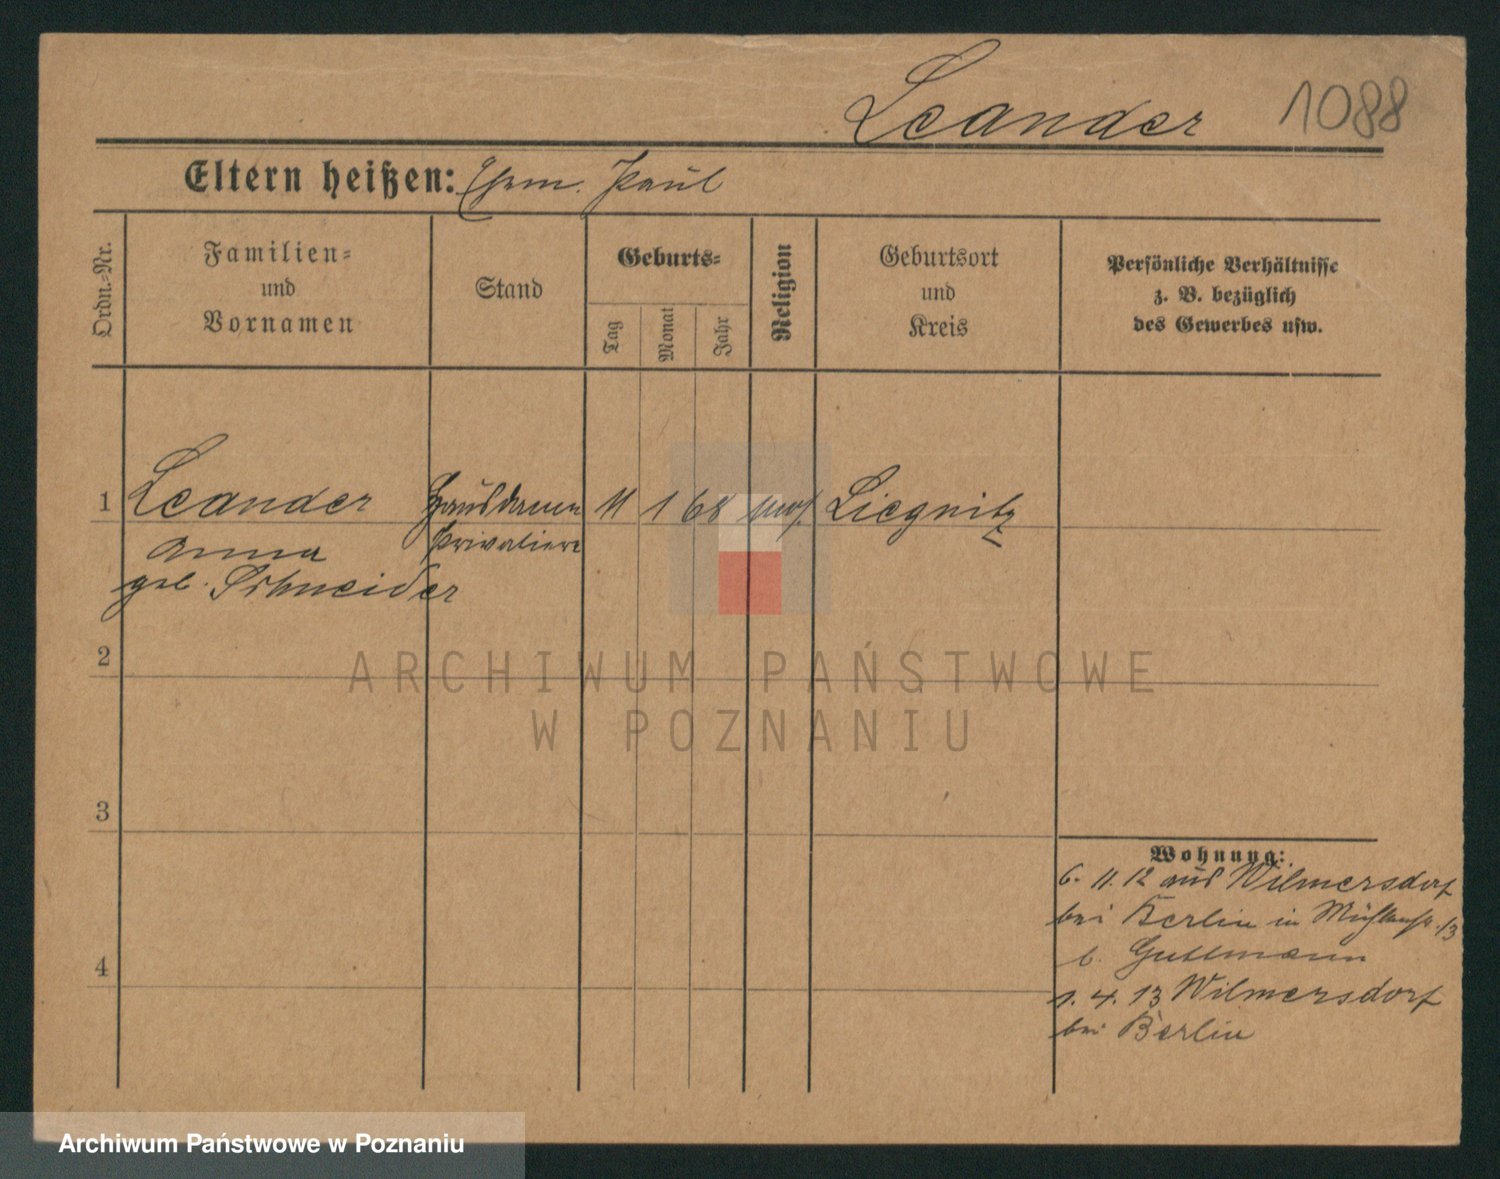 Leander 1088
Eltern heißen: Ehem. Paul
Ordn.-Nr.
Familien-
und
Vornamen
Stand
Geburts-
Tag
Monat
Jahr
Religion
Geburtsort
und
Kreis
Persönliche Verhältnisse
z. B. bezüglich
des Gewerbes usw.
1 Leander 11 1 68 Liegnitz
Anna
geb. Schneider
2
3
4
Wohnung:
6. 11. 12 aus Wilmersdorf
bei Berlin in 13
b. Guttmann
1. 4. 13 Wilmersdorf
bei Berlin
ARCHIWUM PAŃSTWOWE
W POZNANIU
Archiwum Państwowe w Poznaniu